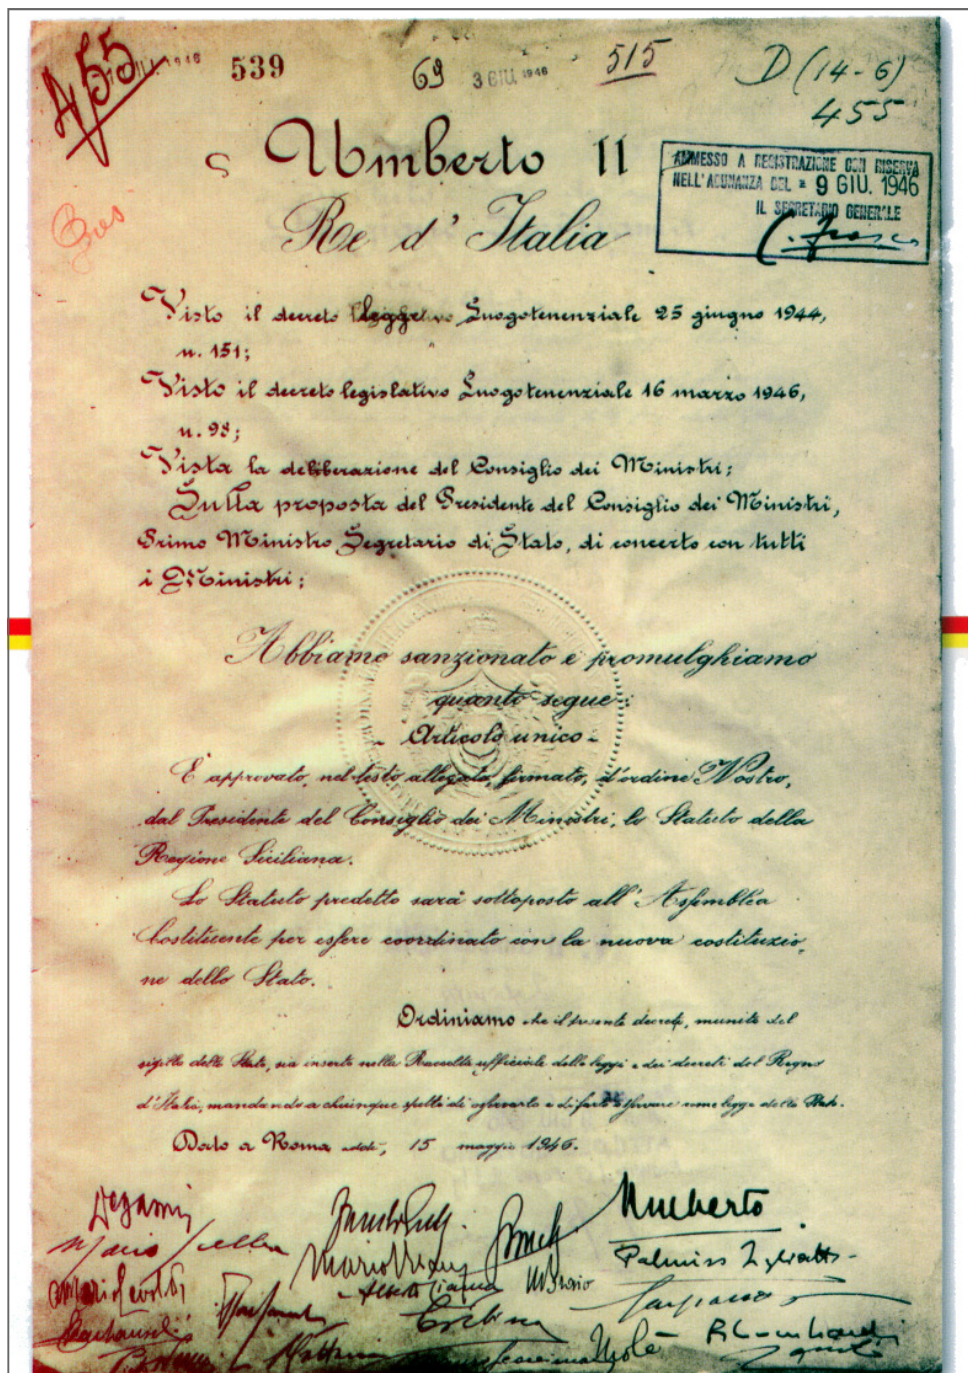 455
539
69
3 GIU 1946
515
D (14-6)
455
Umberto II
Re d'Italia
AMMESSO A REGISTRAZIONE CON RISERVA
NELL'ADUNANZA DEL 9 GIU. 1946
IL SEGRETARIO GENERALE
Visto il decreto legge Luogotenenziale 25 giugno 1944,
n. 151;
Visto il decreto legislativo Luogotenenziale 16 marzo 1946,
n. 98;
Vista la deliberazione del Consiglio dei Ministri;
Sulla proposta del Presidente del Consiglio dei Ministri,
Primo Ministro Segretario di Stato, di concerto con tutti
i Ministri;
Abbiamo sanzionato e promulghiamo
quanto segue:
- Articolo unico -
È approvato, nel testo allegato, firmato, d'ordine Nostro,
dal Presidente del Consiglio dei Ministri, lo Statuto della
Regione Siciliana.
Lo Statuto predetto sarà sottoposto all'Assemblea
Costituente per essere coordinato con la nuova costituzio,
ne dello Stato.
Ordiniamo che il presente decreto, munito del
sigillo dello Stato, sia inserto nella Raccolta ufficiale delle leggi e dei decreti del Regno
d'Italia, mandando a chiunque spetti di osservarlo e di farlo osservare come legge dello Stato.
Dato a Roma, addì, 15 maggio 1946.
Umberto
Palmiro Togliatti